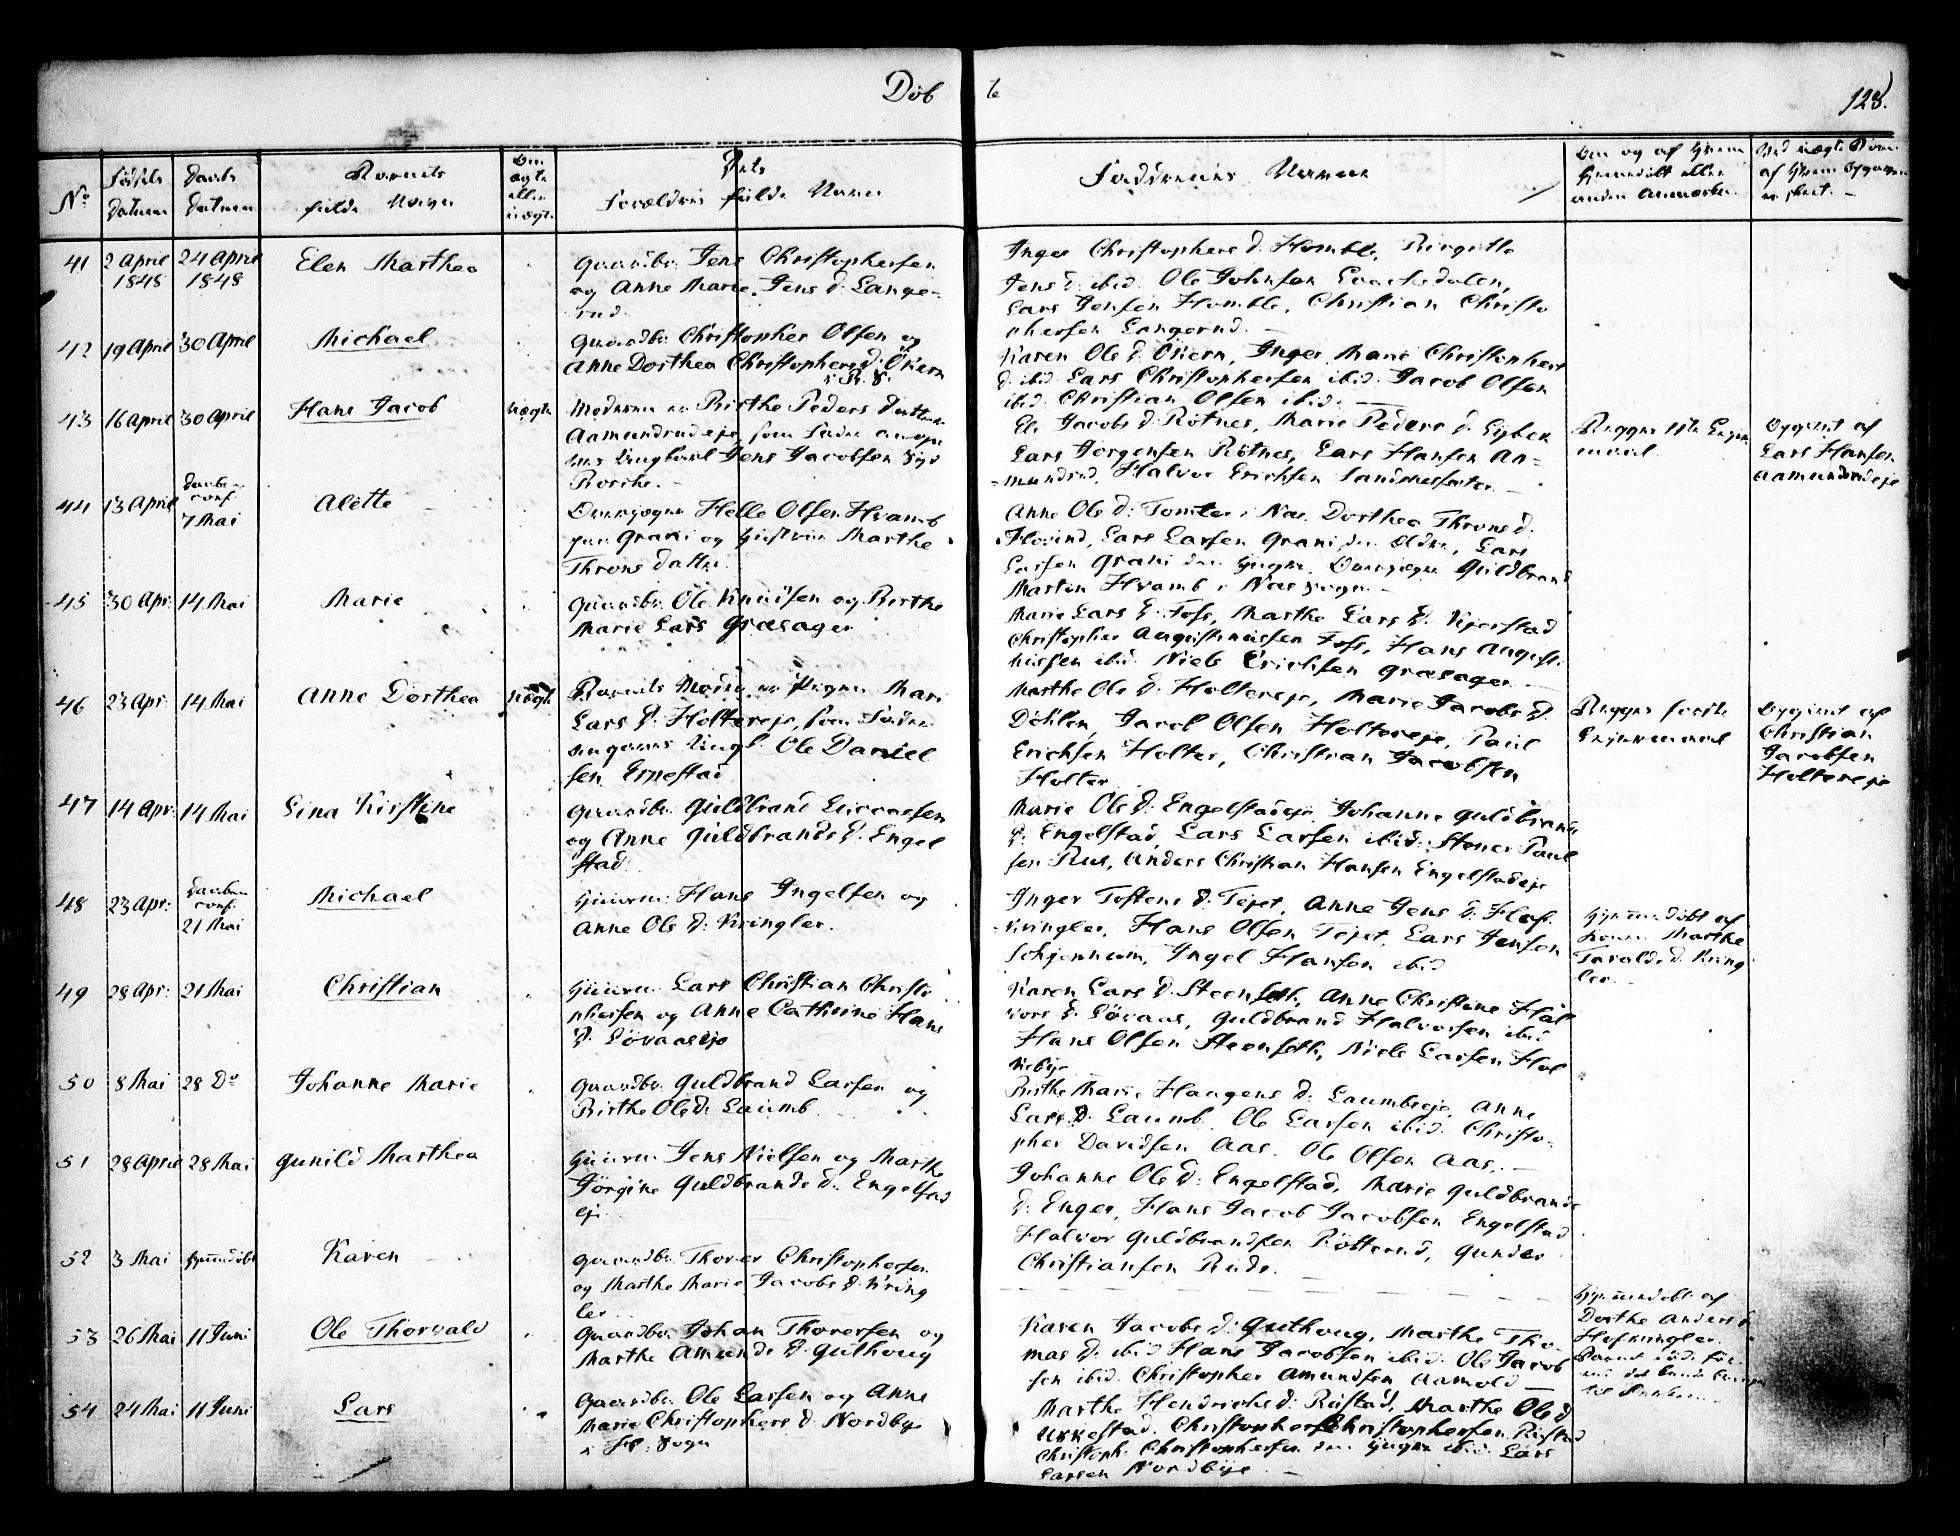 Døb
128.
No
Fødsels Datum
Daabs Datum
Barnets fulde Navn
Om ægte eller uægte
Forældres fulde Navn
Faddernes Navne
41 2 April 1848 24 April 1848 Elen Marthea
Gaardbr. Jens Christophersen
og Anne Marie Jens d. Lange-
rud.
Inger Christophers d. Homble, Birgitte
Jens d. ibid. Ole Johnsen
Lars Jensen Homble, Christian Christo
phersen Langerud.
42 19 April 30 April Michael
Gaardbr. Christopher Olsen og
Anne Dorthea Christophers d. Økern
Karen Ole d. Økern, Inger Marie Christophers
d. ibid. Lars Christophersen ibid. Jacob Olsen
ibid. Christian Olsen ibid.
43 16 April 30 April Hans Jacob uægte
Moderen er Birthe Peders Datter
Aamundrudeje, som Fader angi-
ves Ungkarl Jens Jacobsen
Jacobs d. Rötnes, Marie Peders d.
Lars Jorgensen Rötnes, Lars Hansen Aa-
mundrud, Halvor Erichsen
Begges 1ste Leier
maal.
Opgivet af
Lars Hansen
Aamundrudeje
44 13 April Daaben conf. 7 Mai Alette
Helle Olsen Hvamb
Grani og Hustru Marthe
Throns Datter
Anne Ole d. Tomter i Nas. Dorthea Throns d.
Lars Larsen Grani den Ældre, Lars
Larsen Grani den yngre, Guldbrand
Morten Hvamb i Nas Sogn.
45 30 Apr. 14 Mai Marie
Gaardbr. Ole Knudsen og Birthe
Marie Lars Græsager
Marie Lars d. Foss, Marthe Lars d. Kjerstad
Christopher Augustinussen Foss, Hans Augusti
nussen ibid. Niels Erichsen Græsager
46 23 Apr. 14 Mai Anne Dorthea uægte
Barnets Moder er Pigen Mari
Lars d. Holtereje, som Fader
angives Ungk. Ole Daniel
sen Ernestad
Marthe Ole d. Holtereje, Marie Jacobs d.
Döhlen, Jacob Olsen Holtereje, Paul
Erichsen Holter, Christian Jacobsen
Holter
Begges første
Leiermaal
Opgivet af
Christian
Jacobsen
Holtereje
47 14 Apr. 14 Mai Lina Kirstine
Gaardbr. Guldbrand
og Anne Guldbrands d. Engel
stad
Marie Ole d. Engelstadeje, Johanne Guldbrands
d. Engelstad, Lars Larsen ibid. Stener Paul
sen Rus, Anders Christian Hansen Engelstadeje
48 23 Apr. Daaben conf. 21 Mai Michael
Huusm. Hans Ingelsen og
Anne Ole d. Kringler.
Inger Tostens d. Tejet, Anne Jens d. Hof-
Kringler, Hans Olsen Tejet, Lars Jensen
Ingel Hansen ibid
Hjemmedöbt af
Marthe
d. Kring
ler.
49 28 Apr. 21 Mai Christian
Huusm. Lars Christian Christo
phersen og Anne Cathrine Hans
d. Lövaaseje
Karen Lars d. Steenseth, Anne Christine Hal
vors d. Lövaas, Guldbrand Halvorsen ibid
Hans Olsen Steenseth, Niels Larsen
50 8 Mai 28 Do Johanne Marie
Gaardbr. Guldbrand Larsen og
Birthe Ole d. Laumb
Birthe Marie Haagens d. Laumbseje, Anne
Lars d. Laumb. Ole Larsen ibid. Christo-
pher Davidsen Aas. Ole Olsen Aas.
51 28 April 28 Mai Gunild Marthea
Huusm. Jens Nielsen og Marthe
Jörgine Guldbrands d. Engelstad
ej.
Johanne Ole d. Engelstad, Marie Guldbrands
d. Enger, Hans Jacob Jacobsen Engelstad
Halvor Guldbrandsen Rötterud, Gunder
Christiansen Ruds.
52 3 Mai Hjemmedöbt Karen
Gaardbr. Thorer Christophersen
og Marthe Marie Jacobs d. Kring
ler
Hjemmedöbt af
Dorthe Anders d.
Hofkringler.
53 26 Mai 11 Juni Ole Thorvald
Gaardbr. Johan Thoresen og
Marthe Amunds d. Guthoug
Karen Jacobs d. Guthoug, Marthe Tho-
mas d. ibid Hans Jacobsen ibid. Ole Jacob
sen ibid. Christopher Amundsen Aamold
54 24 Mai 11 Juni Lars
Gaardbr. Ole Larsen og Anne
Marie Christophers d. Nordbye
Sogn
Marthe Hendrichs d. Rustad, Marthe Ole d.
Ukkestad. Christopher Christophersen Rustad
Christoph. Christophersen den Yngre ibid. Lars
Larsen Nordbye